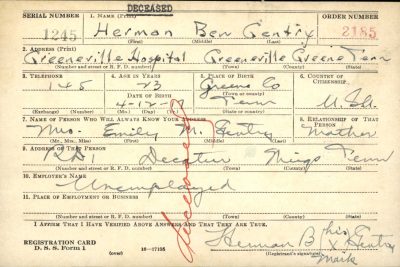 DECEASED
SERIAL NUMBER 1. NAME (Print) ORDER NUMBER
1245 Herman Ben Gentry 2185
(First) (Middle) (Last)
2. ADDRESS (Print)
Greeneville Hospital Greeneville Greene Tenn
(Number and street or R. F. D. number) (Town) (County) (State)
3. TELEPHONE 4. AGE IN YEARS 5. PLACE OF BIRTH 6. COUNTRY OF CITIZENSHIP
145 23 Greene Co
(Town or county)
DATE OF BIRTH
4-12-17 Tenn U.S.A.
(Exchange) (Number) (Mo.) (Day) (Yr.) (State or country)
7. NAME OF PERSON WHO WILL ALWAYS KNOW YOUR ADDRESS 8. RELATIONSHIP OF THAT PERSON
Mrs. Emily M. Gentry Mother
(Mr., Mrs., Miss) (First) (Middle) (Last)
9. ADDRESS OF THAT PERSON
RD1 Decatur Meigs Tenn
(Number and street or R. F. D. number) (Town) (County) (State)
10. EMPLOYER'S NAME
Unemployed
11. PLACE OF EMPLOYMENT OR BUSINESS
(Number and street or R. F. D. number) (Town) (County) (State)
Deceased
I AFFIRM THAT I HAVE VERIFIED ABOVE ANSWERS AND THAT THEY ARE TRUE.
REGISTRATION CARD
D. S. S. Form 1 (over) 16—17105
Herman B his x Gentry
(Registrant's signature)
Mark